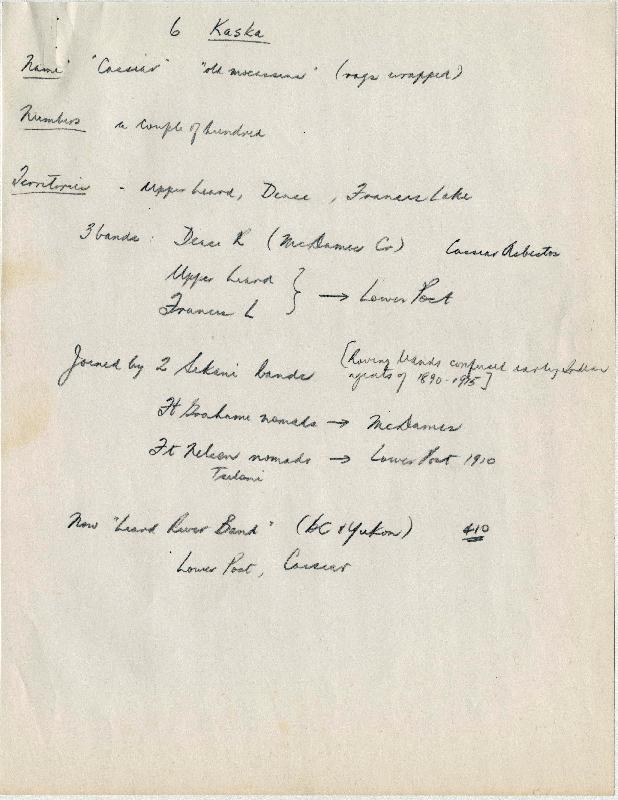 6 Kaska
Name "Cassiar" "old mocassins" (rags wrapped)
Numbers a couple of hundred
Territories - Upper Liard, Dease, Francis Lake
3 bands: Dease R (McDames Cr) Cassiar Asbestos
Upper Liard
Francis L } → Lower Post
Joined by 2 Sekani bands [Roving bands confused early Indian
agents of 1890-1915]
Ft Grahame nomads → McDames
Ft Nelson nomads → Lower Post 1910
Tselani
Now "Liard River Band" (BC & Yukon) 410
Lower Post, Cassiar